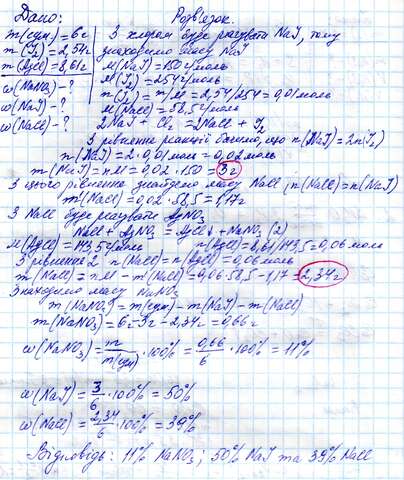 Дано: Розв'язок.
m(сум.) = 6 г З хлором буде реагувати NaI, тому
m(I₂) = 2,54г знаходимо масу NaI
m(AgCl) = 8,61г M(NaI) = 150г/моль
ω(NaNO₃) - ? M(I₂) = 254г/моль
ω(NaI) - ? n(I₂) = m/M = 2,54/254 = 0,01моль
ω(NaCl) - ? M(NaCl) = 58,5г/моль
2NaI + Cl₂ = 2NaCl + I₂
З рівняння реакції бачимо, що n(NaI) = 2n(I₂)
n(NaI) = 2·0,01моль = 0,02моль
m(NaI) = nM = 0,02·150 = 3г
З цього рівняння знайдемо масу NaCl, n(NaCl) = n(NaI)
m(NaCl) = 0,02·58,5 = 1,17г
З NaCl буде реагувати AgNO₃
NaCl + AgNO₃ = AgCl↓ + NaNO₃ (2)
M(AgCl) = 143,5г/моль n(AgCl) = 8,61/143,5 = 0,06моль
З рівняння 2 n(NaCl) = n(AgCl) = 0,06моль
m(NaCl) = nM - m(NaCl) = 0,06·58,5 - 1,17 = 2,34г
Знаходимо масу NaNO₃
m(NaNO₃) = m(сум) - m(NaI) - m(NaCl)
m(NaNO₃) = 6г - 3г - 2,34г = 0,66г
ω(NaNO₃) = m/m(сум) · 100% = 0,66/6 · 100% = 11%
ω(NaI) = 3/6 · 100% = 50%
ω(NaCl) = 2,34/6 · 100% = 39%
Відповідь: 11% NaNO₃; 50% NaI та 39% NaCl